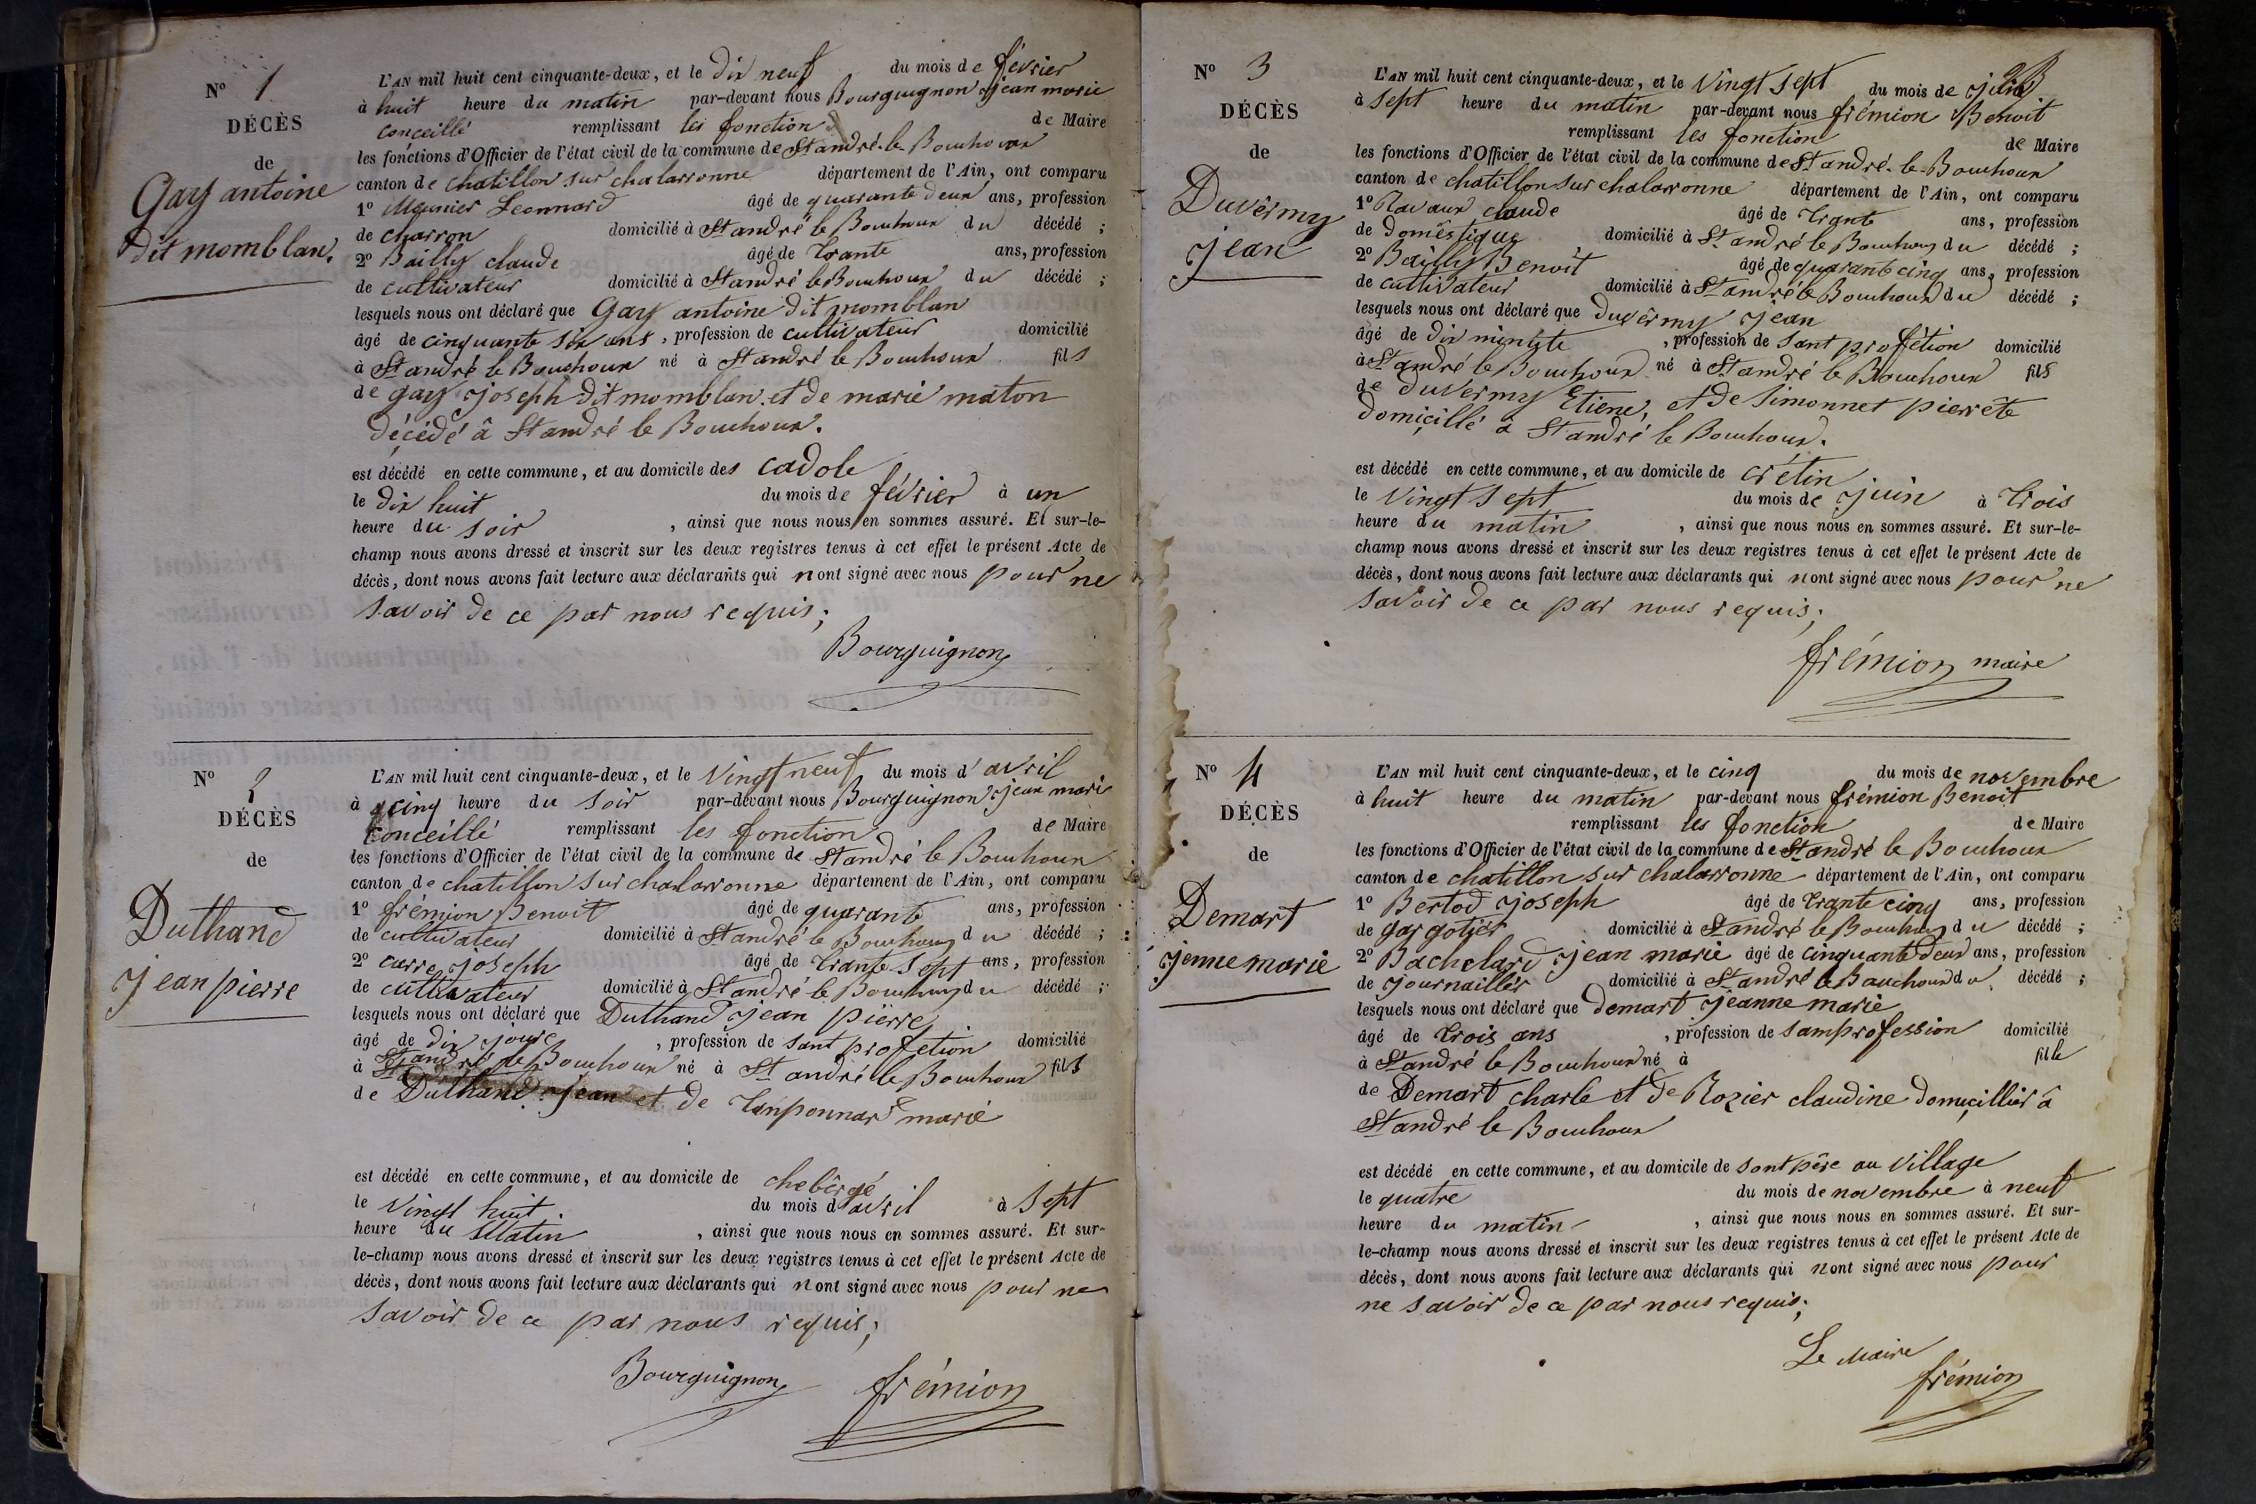 N° 1
DÉCÈS
de
Gay antoine
dit momblan.
L'AN mil huit cent cinquante-deux, et le dix neuf du mois de février
à huit heure du matin par-devant nous Bourguignon jean marie
conceillé remplissant les fonction de Maire
les fonctions d'Officier de l'état civil de la commune de St andré-le-Bouchoux
canton de chatillon sur chalarronne département de l'Ain, ont comparu
1° Meunier Leonnard âgé de quarante deux ans, profession
de charron domicilié à St andré le Bouchoux du décédé ;
2° Bailly claude âgé de trante ans, profession
de cultivateur domicilié à St andré le Bouchoux du décédé ;
lesquels nous ont déclaré que Gay antoine dit momblan
âgé de cinquante six ans, profession de cultivateur domicilié
à St andré le Bouchoux né à St andré le Bouchoux fils
de gay joseph dit momblan et de marie maton
décédé â St andré le Bouchoux.
est décédé en cette commune, et au domicile des cadole
le dix huit du mois de février à un
heure du soir , ainsi que nous nous en sommes assuré. Et sur-le-
champ nous avons dressé et inscrit sur les deux registres tenus à cet effet le présent Acte de
décès, dont nous avons fait lecture aux déclarants qui nont signé avec nous pour ne
savoir de ce par nous requis;
Bourguignon
N° 2
DÉCÈS
de
Duthand
jean pierre
L'AN mil huit cent cinquante-deux, et le vingt neuf du mois d'avril
à cinq heure du soir par-devant nous Bourguignon jean marie
conceillé remplissant les fonction de Maire
les fonctions d'Officier de l'état civil de la commune de St andré le Bouchoux
canton de chatillon sur chalarronne département de l'Ain, ont comparu
1° frémion Benoit âgé de quarante ans, profession
de cultivateur domicilié à St andré le Bouchoux du décédé ;
2° carre joseph âgé de trante sept ans, profession
de cultivateur domicilié à St andré le Bouchoux du décédé ;
lesquels nous ont déclaré que Duthand jean pierre
âgé de dix jours , profession de sant profetion domicilié
à St andré le Bouchoux né à St andré le Bouchoux fils
de Duthand jean et de Tanponnard marie
est décédé en cette commune, et au domicile de chebêrgé
le vingt huit du mois d'avril à sept
heure du Matin , ainsi que nous nous en sommes assuré. Et sur-
le-champ nous avons dressé et inscrit sur les deux registres tenus à cet effet le présent Acte de
décès, dont nous avons fait lecture aux déclarants qui nont signé avec nous pour ne
savoir de ce par nous requis;
Bourguignon frémion
N° 3
DÉCÈS
de
Duvêrmy
jean
L'AN mil huit cent cinquante-deux, et le vingt sept du mois de juin
à sept heure du matin par-devant nous frémion Benoit
remplissant les fonction de Maire
les fonctions d'Officier de l'état civil de la commune de St andré-le-Bouchoux
canton de chatillon sur chalarronne département de l'Ain, ont comparu
1° Ravaux claude âgé de trante ans, profession
de domêstique domicilié à St andré le Bouchoux du décédé ;
2° Bailly Benoit âgé de quarante cinq ans, profession
de cultivateur domicilié à St andré le Bouchoux du décédé ;
lesquels nous ont déclaré que duvêrmy jean
âgé de dix minute , profession de sant profétion domicilié
à St andré le Bouchoux né à St andré le Bouchoux fils
de duvermy Etiene, et de Simonnet pierrête
domicillé à St andré le Bouchoux.
est décédé en cette commune, et au domicile de crétin
le vingt sept du mois de juin à trois
heure du matin , ainsi que nous nous en sommes assuré. Et sur-le-
champ nous avons dressé et inscrit sur les deux registres tenus à cet effet le présent Acte de
décès, dont nous avons fait lecture aux déclarants qui nont signé avec nous pour ne
savoir de ce par nous requis;
frémion maire
N° 4
DÉCÈS
de
Demart
jenne marie
L'AN mil huit cent cinquante-deux, et le cinq du mois de novembre
à huit heure du matin par-devant nous frémion Benoit
remplissant les fonction de Maire
les fonctions d'Officier de l'état civil de la commune de St andré le Bouchoux
canton de chatillon sur chalarronne département de l'Ain, ont comparu
1° Bertod joseph âgé de trante cinq ans, profession
de gargotier domicilié à St andré le Bouchoux du décédé ;
2° Bachelard jean marie âgé de cinquante deux ans, profession
de journaillér domicilié à St andré le Bouchoux du décédé ;
lesquels nous ont déclaré que demart jeanne marie
âgé de trois ans , profession de samprofession domicilié
à St andré le Bouchoux né à fille
de Demart charle et de Rozier claudine domicillier à
St andré le Bouchoux
est décédé en cette commune, et au domicile de sont pêre au village
le quatre du mois de novembre à neuf
heure du matin , ainsi que nous nous en sommes assuré. Et sur-
le-champ nous avons dressé et inscrit sur les deux registres tenus à cet effet le présent Acte de
décès, dont nous avons fait lecture aux déclarants qui nont signé avec nous pour
ne savoir de ce par nous requis;
Le Maire
frémion